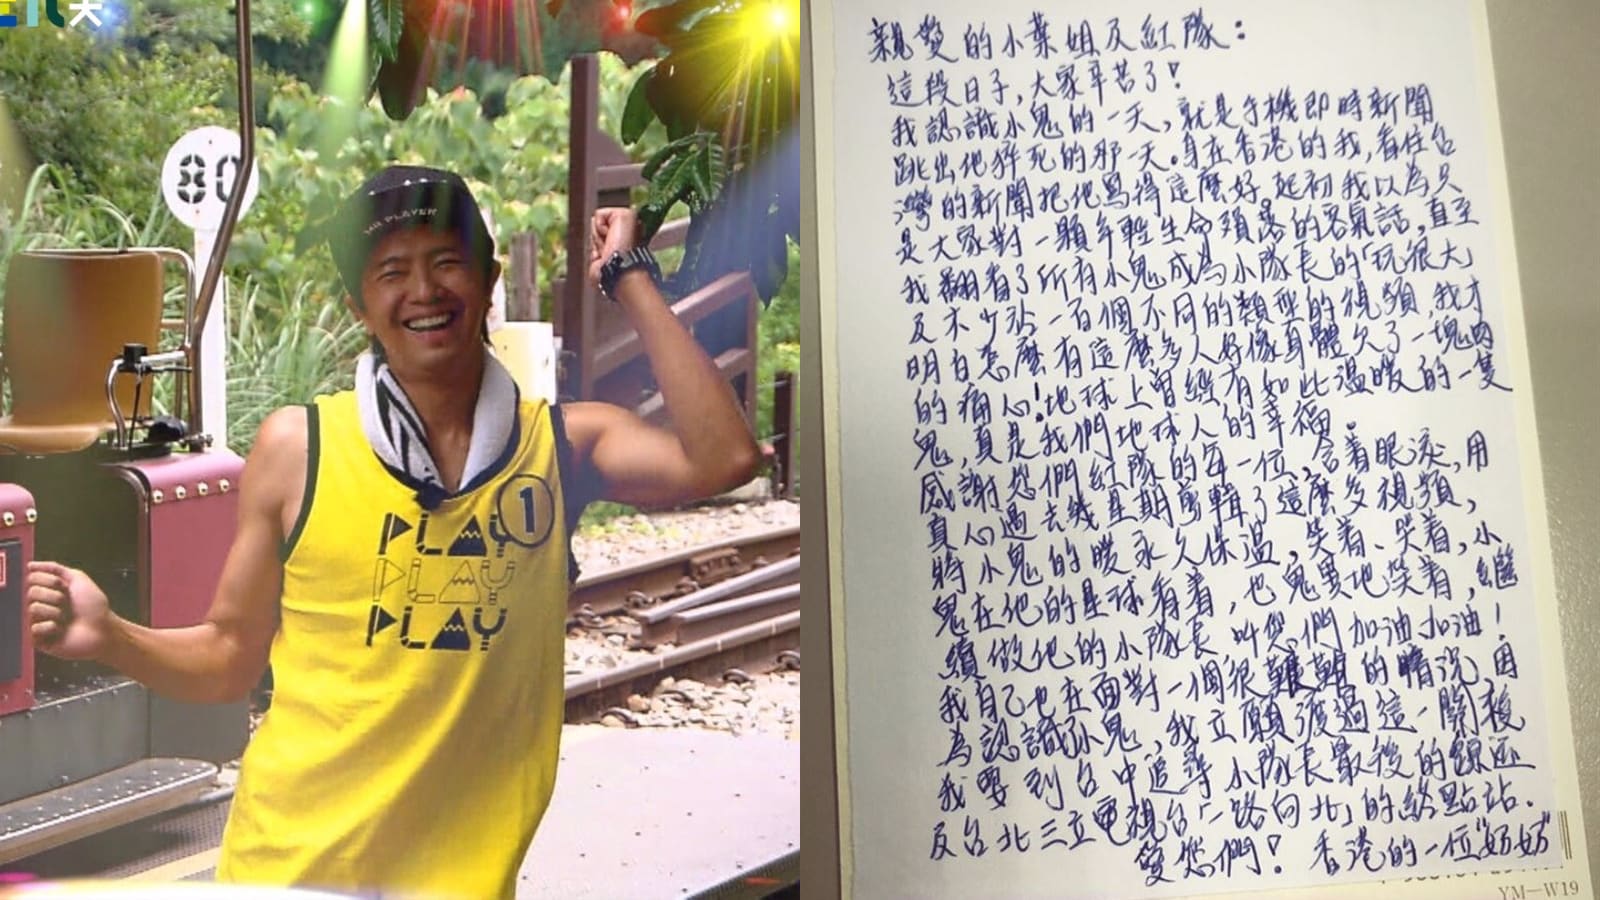 天
80
1ST PLAYER
1
PLAY
PLAY
PLAY
親愛的小葉姐及紅隊：
這段日子，大家辛苦了！
我認識小鬼的一天，就是手機即時新聞
跳出他猝死的那一天。身在香港的我，看住台
灣的新聞把他寫得這麼好。起初我以為只
是大家對一顆年輕生命殞落的客氣話，直至
我翻看了所有小鬼成為小隊長的「玩很大」
及不少 一百個不同的類型的視頻，我才
明白怎麼有這麼多人好像身體欠了一塊肉
的痛心！地球上曾經有如此溫暖的一隻
鬼，真是我們地球人的幸福。
感謝您們紅隊的每一位，含着眼淚，用
真心過去幾星期剪輯了這麼多視頻，
將小鬼的暖永久保溫，笑着、笑着，小
鬼在他的星球看着，也鬼異地笑着，繼
續做他的小隊長叫您們加油加油！
我自己也在面對一個很艱難的 況，因
為認識小鬼，我立願渡過這一關後
我要到台中追尋小隊長最後的蹤迹
及台北三立電視台「一路向北」的終點站。
愛您們！ 香港的一位"奶奶"
YM—W19